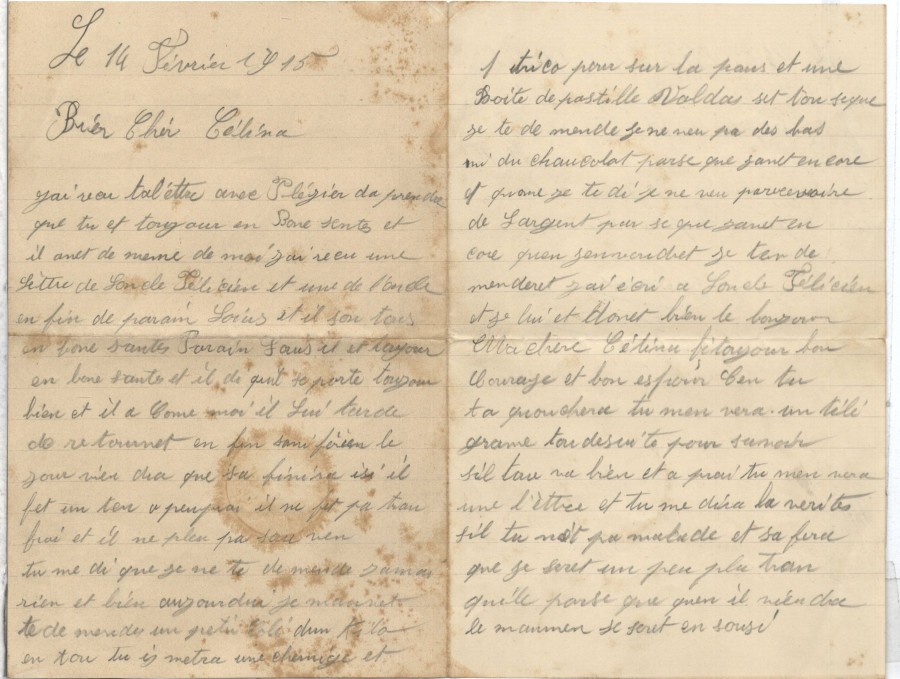 Le 14 Février 1915
Bien Chér Célina
jai recu taléttre avec Plézier da prendre
que tu et toujour en Bone Sentes et
il anet de meme de moi jai recu une
Léttre de Loncle Félicien et une de l'oncle
en fin de parain Louis et il son tous
en bone santes Parain Louis il et toujour
en bone sante et il di quil se porte toujour
bien et il a Come moi il Lui tarde
de retournet en fin le
jour vien dra que sa finira isi il
fet un ten a peu prai il ne fet pa trau
froi et il ne pleu pa sauven
tu me di que je ne te demende jamai
rien et bién aujourdui je
te demende un peti Coli dun Kilo
en tou tu is metra une chemise et
1 trico pour sur la paus et une
Boite de pastille Valdas set tou seque
je te demende je ne veu pa des bas
ni du chaucolat parse que janet en core
et quome je te di je ne veu pa recevoire
de Largent par se que janet en
core quen jenvoudret je ten de
menderet jai écri a Loncle Félicien
et je lui et donet bien le bonjour
Ma chere Célina fi toujour bon
Courage et bon espoir Cen tu
ta quouchera tu men vera un télé
grame tou desuite pour savoir
sil tau va bien et a prai tu men vera
une l'éttre et tu me dira la verites
sil tu nét pa malade et sa fera
que je seret un peu plu tran
quile parse que quen il viendra
le maumen je seret en sousi